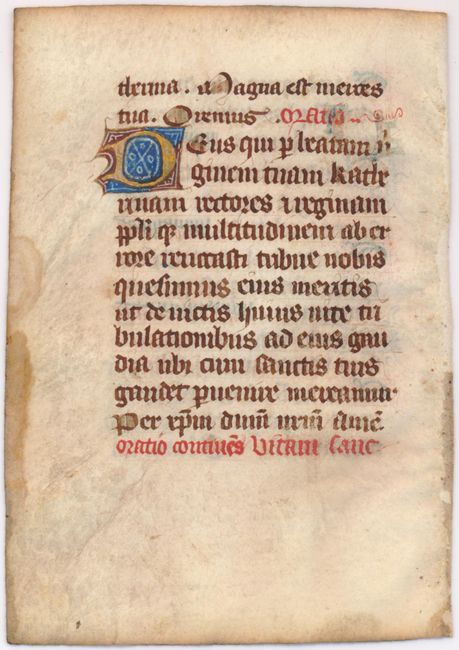 therina . Magna est merces
tua . Oremus . oratio
Deus qui p beatam vi
ginem tuam kathe
rinam rectores reginam
multitudinem ab er
rore revocasti tribue nobis
quesumus eius meritis
ut devictis huius vite tri
bulationibus ad eius gau
dia ubi cum sanctis tuis
gaudet pvenire mereamur
Per xpm dnm nrm Ame
oratio continens vitam sanc